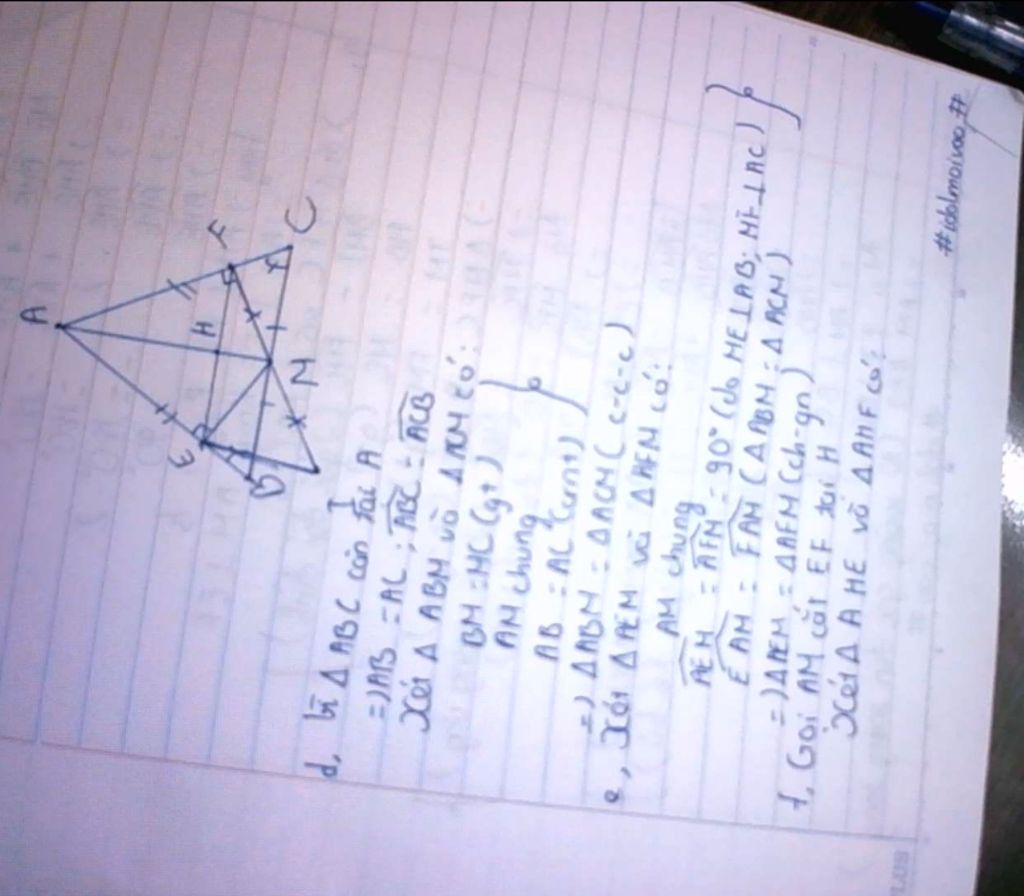 A
E
H
F
B
M
C
I
d, Vì Δ ABC cân tại A
=) AB = AC ; ABC = ACB
Xét Δ ABM và Δ ACM có:
BM = MC (gt)
AM chung
AB = AC (cmt)
=) Δ ABM = Δ ACM (c-c-c)
e, Xét Δ AEM và Δ AFM có:
AM chung
AEM = AFM = 90° (do ME⊥AB; MF⊥AC)
EAM = FAM (Δ ABM = Δ ACM)
=) Δ AEM = Δ AFM (ch-gn)
f, Gọi AM cắt EF tại H
Xét Δ AHE và Δ AHF có: